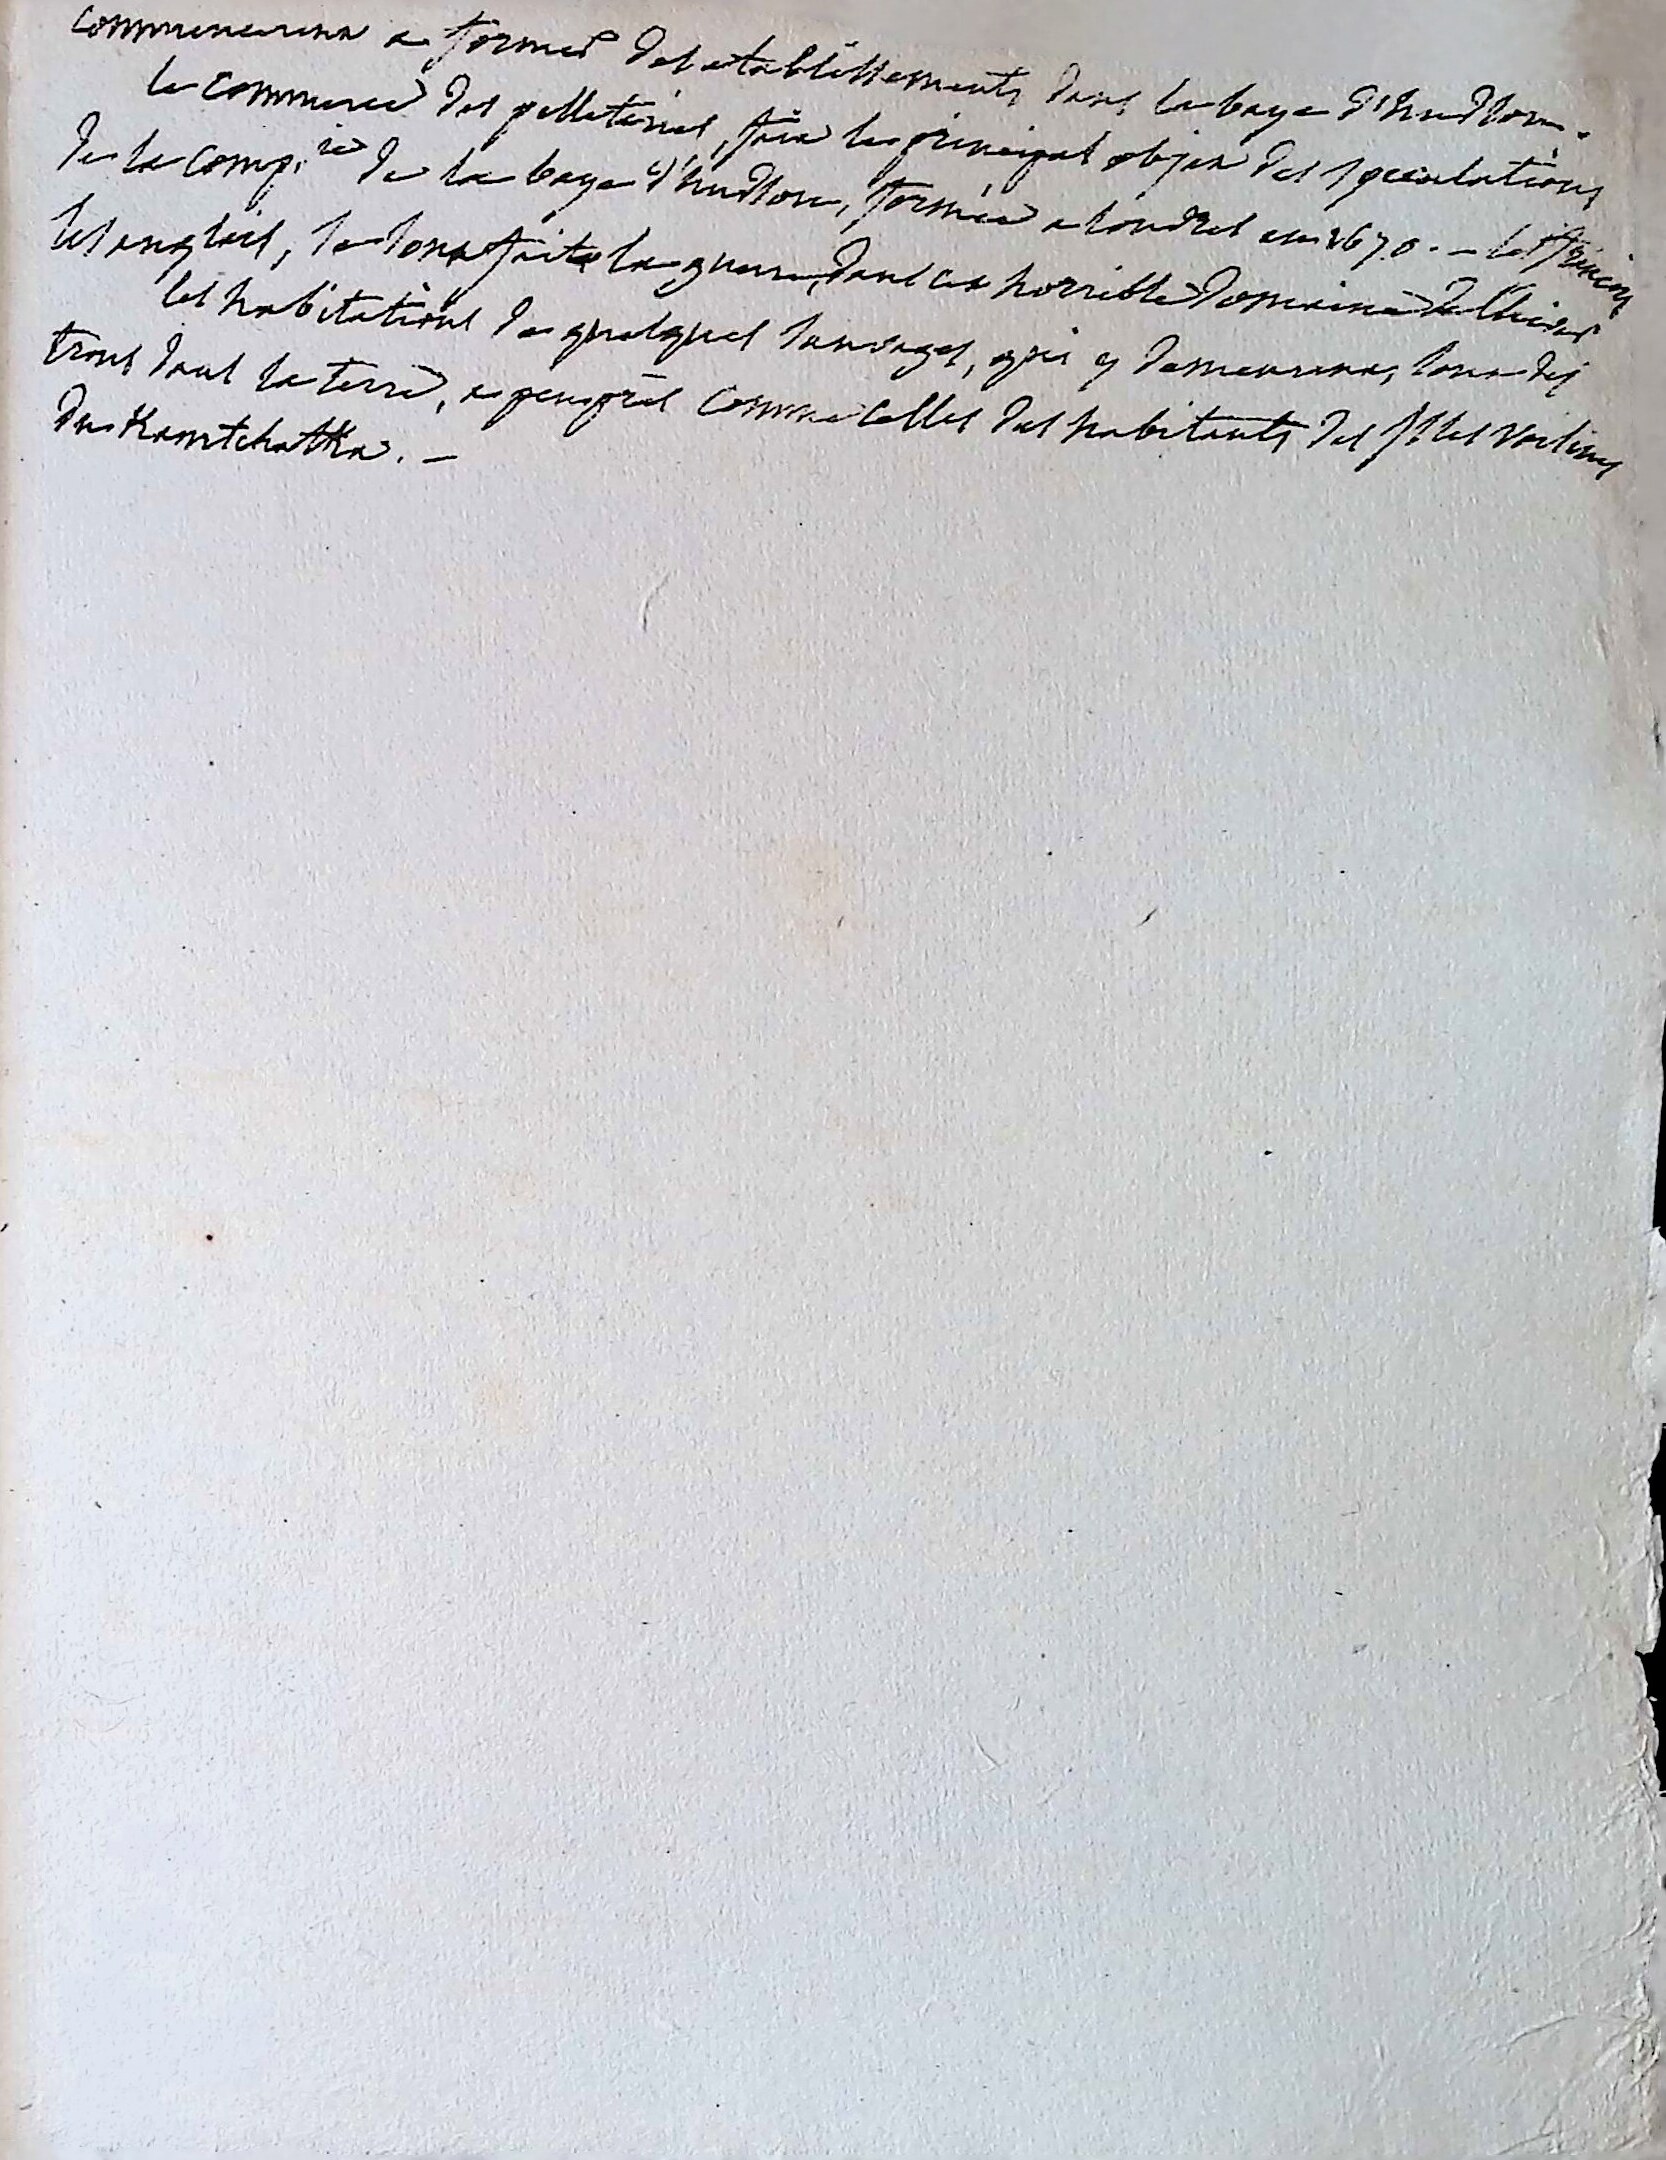 commencerent a former des etablissements dans la baye d'hudson.
le commerce des pelleteries, fait le principal objet des speculations
de la comp.ie de la baye d'hudson, formée a londres en 1670. — les françois
les anglois, se sont faits la guerre, dans cet horrible domaine de l'hiver
les habitations de quelques sauvages, qui y demeurent, sont des
trous dans la terre, a peu près comme celles des habitants des isles voisines
du Kamtchatka. —